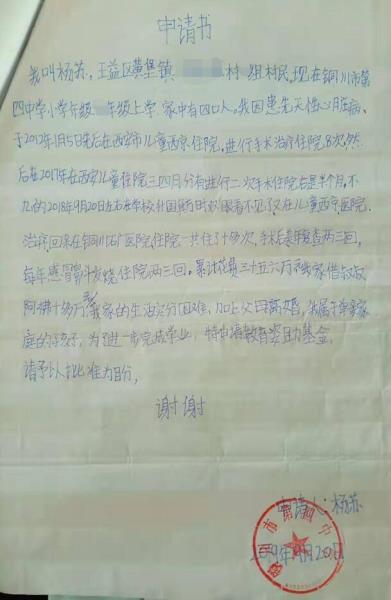 申请书
我叫杨苏，王益区黄堡镇 村 组村民，现在铜川市第
四中学小学年级 年级上学，家中有四口人。我因患先天性心脏病，
于2012年1月5日先后在西安市儿童西京住院，进行手术治疗住院8次，然
后在2017年在西安儿童住院三四月分有进行二次手术住院右是半个月，不
2018年9月20日左右在学校 时 眼看不见了又在儿童西京医院
治疗，回来在铜川矿医院住院一共住了十多次，手术后每年复查两三回，
每年感冒 发烧住院两三回。累计花费三十五六万 我家借
十多万我家的生活 分困难，加上父母离婚，我属于单亲家
庭的孩子，为了进一步完成学业，特申请教育资助基金，
请予以批准为盼，
谢谢
申请人：杨苏
铜川市第四中
2019年 月20日